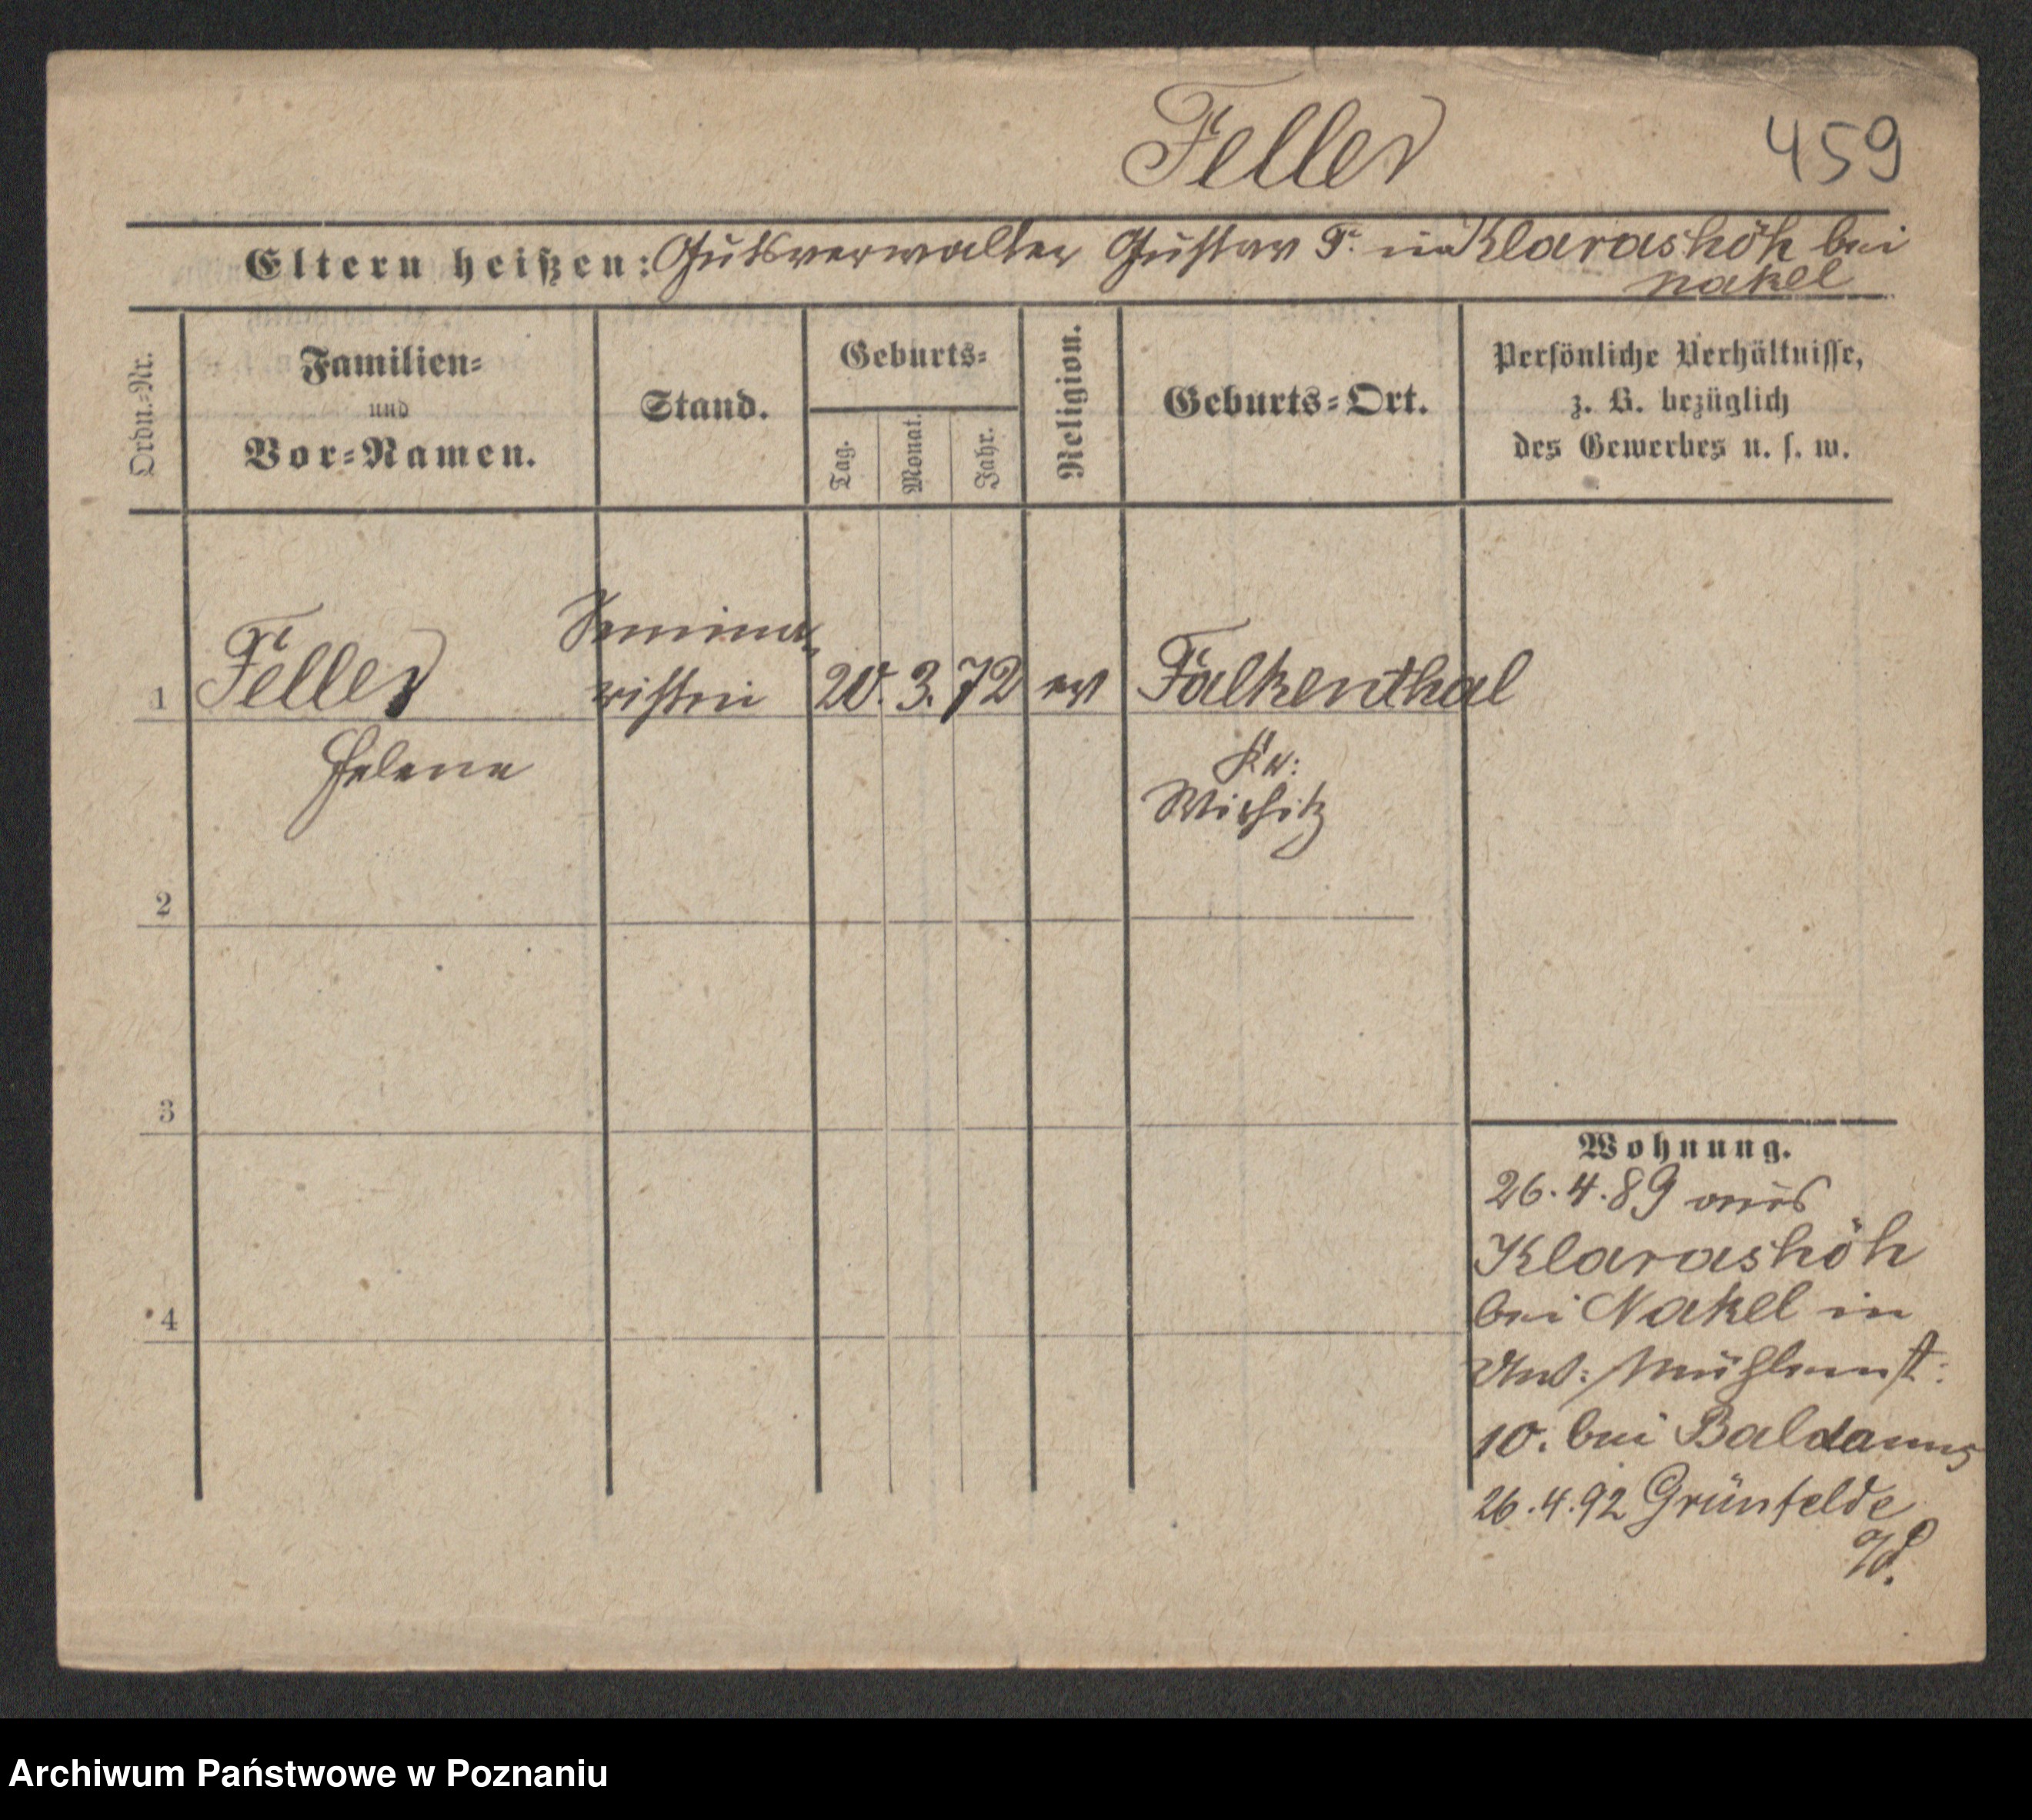 Feller
459
Eltern heißen: Gutsverwalter Gustav F. in Klarashöh bei
Nakel
Ordn.-Nr.
Familien-
und
Vor-Namen.
Stand.
Geburts-
Tag.
Monat.
Jahr.
Religion.
Geburts-Ort.
Persönliche Verhältnisse,
z. B. bezüglich
des Gewerbes u. s. w.
1 Feller Semina-
ristin 20. 3. 72 ev Falkenthal
Helene
Kr:
Wirsitz
2
3
4
Wohnung.
26.4.89 aus
Klarashöh
bei Nakel in
Mühlenst:
10. bei Baldamus
26.4.92 Grünfelde
Archiwum Państwowe w Poznaniu